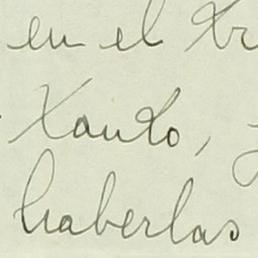 en el tr
tanto,
haberlas